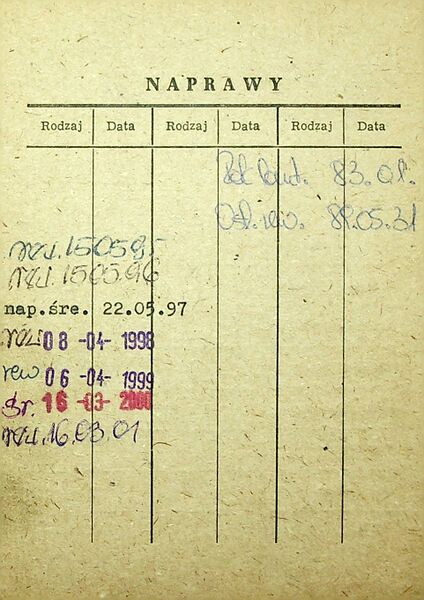 NAPRAWY
Rodzaj Data Rodzaj Data Rodzaj Data
83.01.
Ost. rew. 89.05.31
rew. 150595
rew. 150596
nap.śre. 22.05.97
rew 08-04-1998
rew 06-04-1999
śr. 16-03-2000
rew. 16.03.01